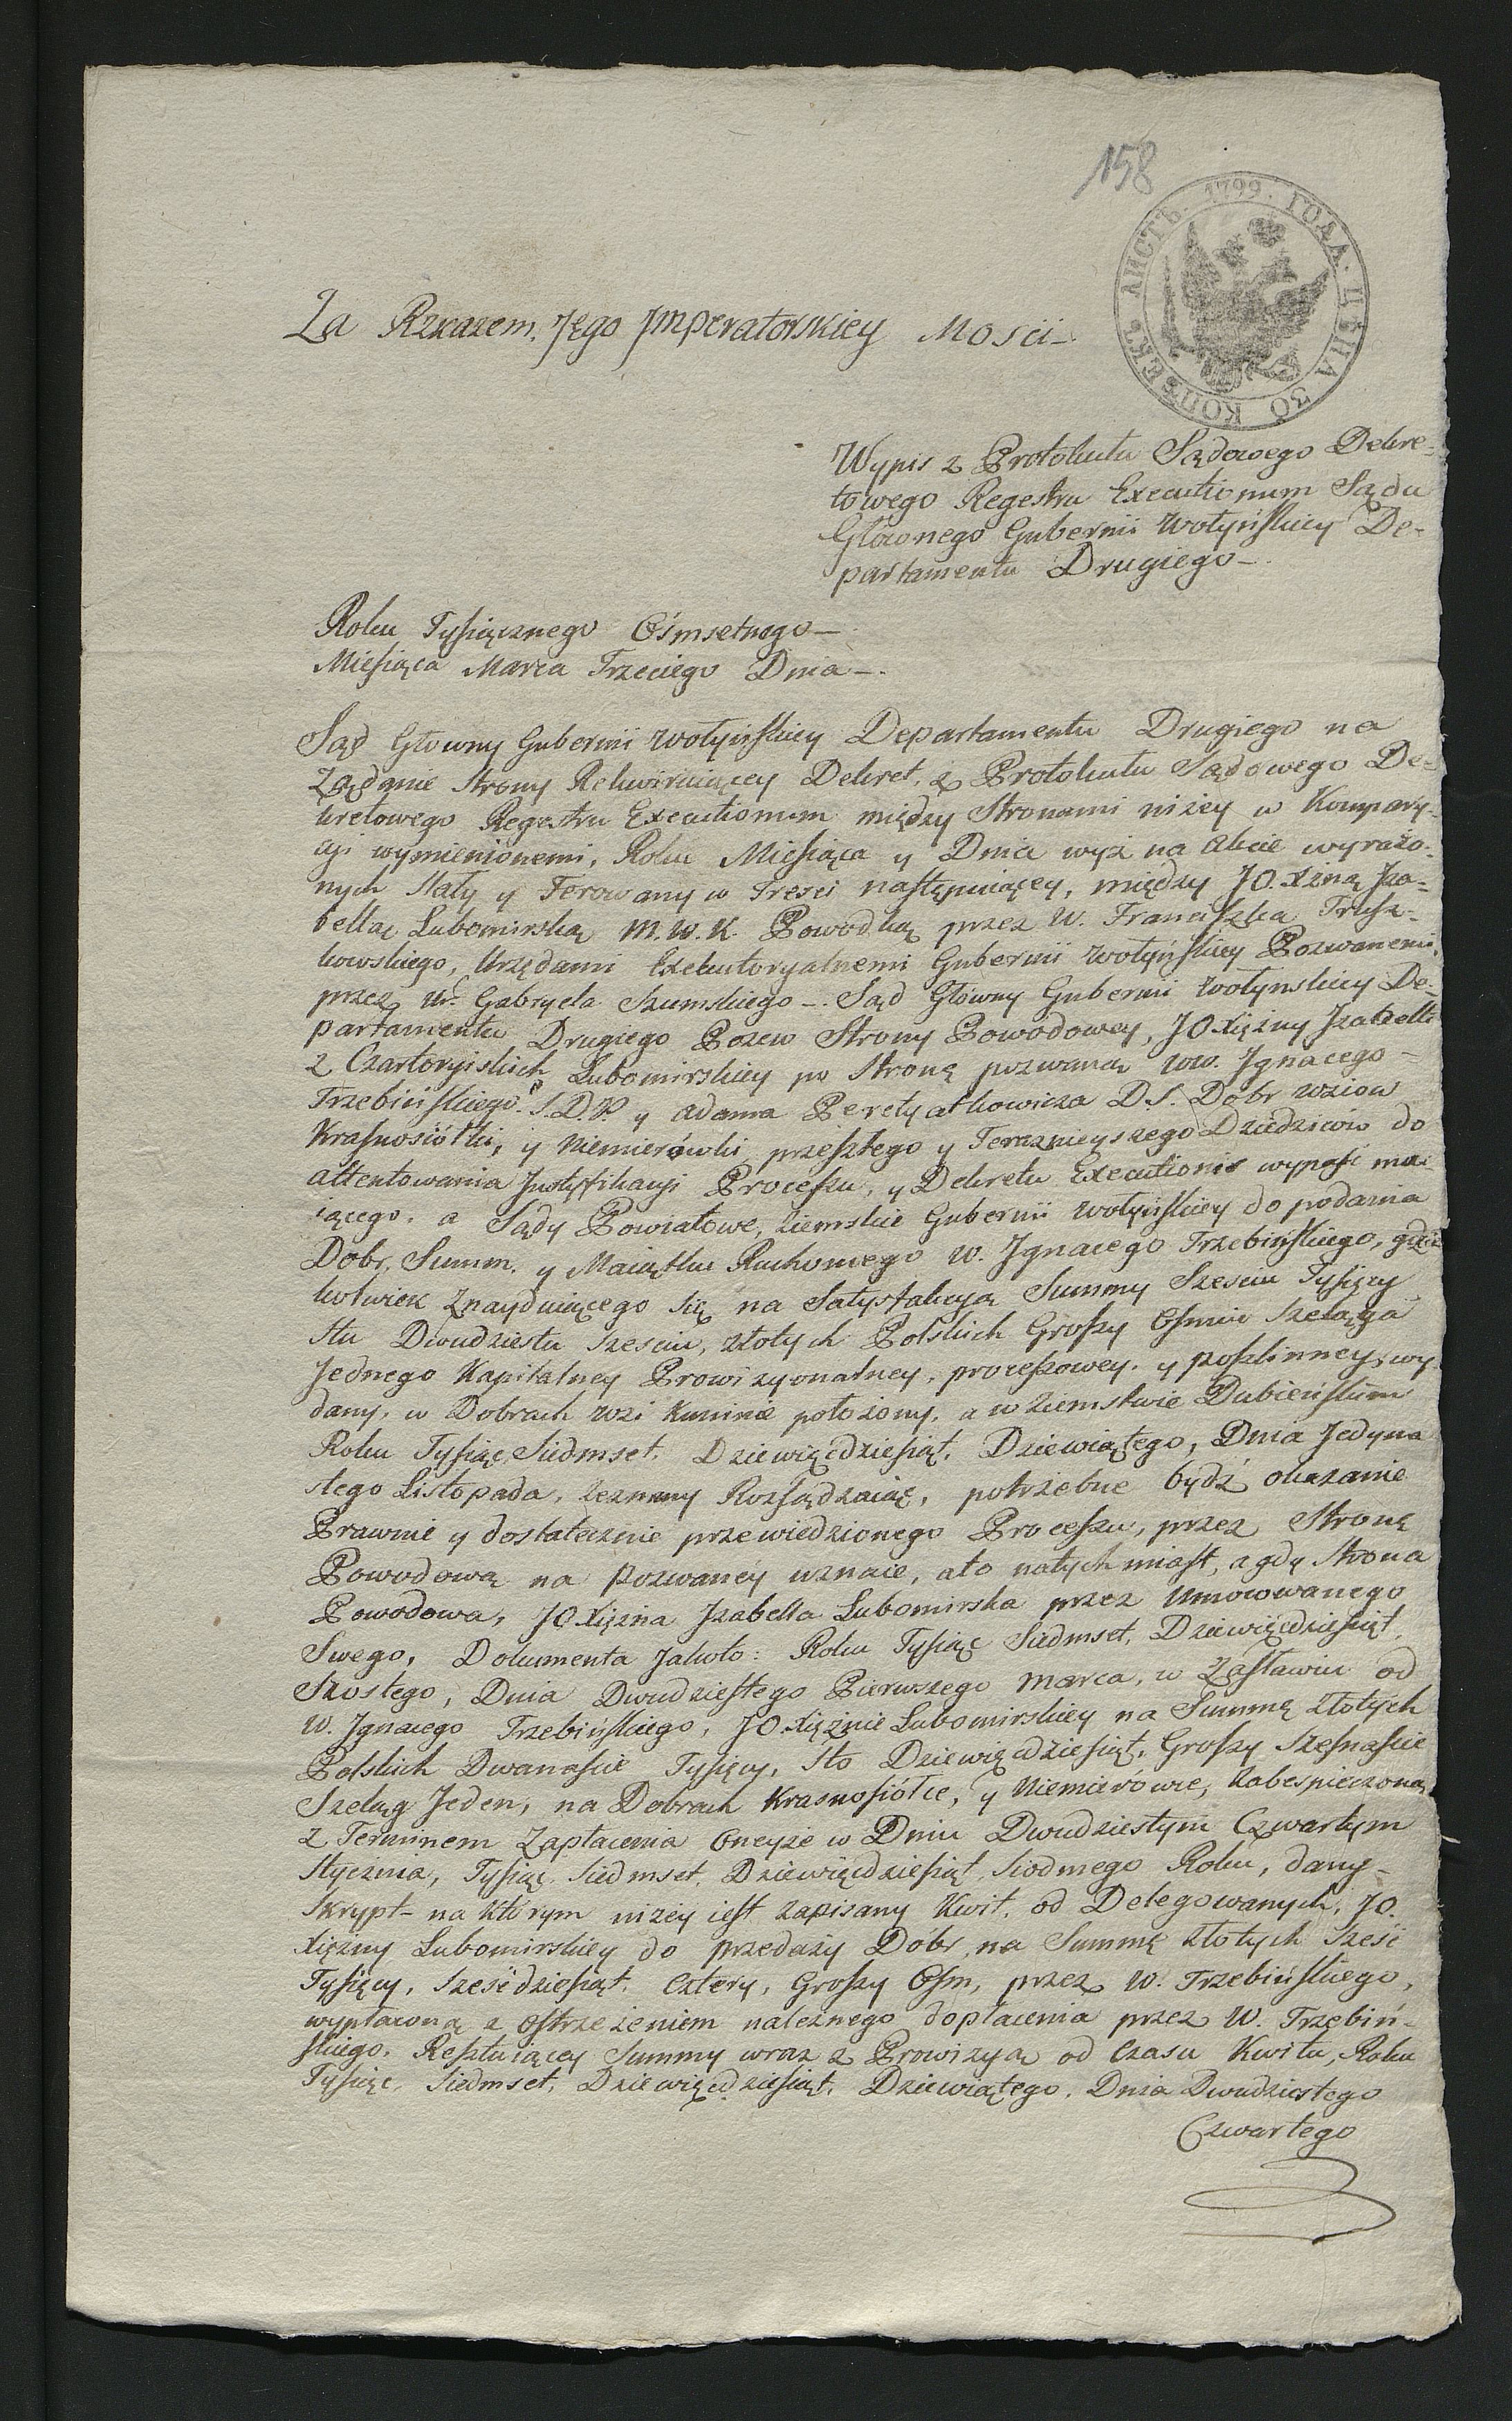 158
ЛИСТЪ. 1799. ГОДА. ЦѢНА 30 КОПѢЕКЪ.
Za Rzkazem. Jego Jmperatorskiey Mosci-
Wypis z Protokułu Sądowego Dekre-
towego Regestru Executionum Sądu
Głównego Gubernii Wołyńskiey De-
partamentu Drugiego-.
Roku Tysiącznego Ośmsetnego-
Miesiąca Marca Trzeciego Dnia-.
Sąd Głowny Gubernii Wołyńskiey Departamentu Drugiego na
Żądanie Strony Rekwiruiącey Dekret, z Protokułu Sądowego De-
kretowego Regestru Executionum między Stronami niżey w Kompary-
cji wymienionemi, Roku Miesiąca y Dnia wyż na Akcie wyrażo-
nych Stały y Ferowany w Tresci następuiącey, między JO. Xżną Jza-
bellą Lubomirską M.W.K. Powodką przez W. Franciszka Trusz-
kowskiego, Urzędami Exekutoryalnemi Gubernii Wołyńskiey Pozwanemi
przez Ur. Gabryela Szumskiego-. Sąd Główny Gubernii Wołynskiey De-
partamentu Drugiego Pozew Strony Powodowey, JO Xiężny Jzabelli
z Czartoryiskich Lubomirskiey po Stronę pozwaną WW. Jgnacego-
Trzebińskiego S.D.P. y Adama Peretyatkowicza D.S. Dobr wziow
Krasnosiółki, y Niemierówki przeszłego y Teraznieyszego Dziedziców do
attentowania Justyfikacji Processu, y Dekretu Executionis wypasi ma-
iącego, a Sądy Powiatowe, Ziemskie Gubernii Wołyńskiey do podania
Dobr, Summ, y Maiątku Ruchomego W. Jgnacego Trzebińskiego, gdzie
kolwiek Znayduiącego się na Satysfakcyą Summy Szesciu Tysięcy
Stu Dwudziestu Szesciu, złotych Polskich Groszy Osmiu Szelągа
Jednego Kapitalney Prowizyonalney, processowey, y poszlinney, wy
dany, w Dobrach wsi Kuninie położony, a w Ziemstwie Dubieńskim
Roku Tysiąc Siedmset, Dziewięćdziesiąt, Dziewiątego, Dnia Jedyna
stego Listopada, zeznany Rozsądzaiąc, potrzebne bydź okazanie
Prawnie y dostatecznie przewiedzionego Processu, przez Stronę
Powodową na pozwaney uznaie, ato natychmiast, a gdy Strona
Powodowa, JO Xiężna Jzabella Lubomirska przez Umocowanego
Swego, Dokumenta Jakoto: Roku Tysiąc Siedmset, Dziewięćdziesiąt,
Szostego, Dnia Dwudziestego Pierwszego Marca, w Zasławiu od
W. Jgnacego Trzebińskiego, JO. Xiężnie Lubomirskiey na Summę Złotych
Polskich Dwanascie Tysięcy, Sto Dziewięćdziesiąt, Groszy Szesnascie
Szeląg Jeden, na Dobrach Krasnosiółce, y Niemierówce, Zabespieczoną
z Terminem Zapłacenia Oneyże w Dniu Dwudziestym Czwartym
Stycznia, Tysiąc Siedmset, Dziewięćdziesiąt, Siodmego Roku, dany-
Skrypt- na którym nizey iest Zapisany Kwit, od Delegowanych, JO.
Xiężny Lubomirskiey do przedaży Dóbr, na Summę Złotych Sześć
Tysięcy, Sześćdziesiąt, Cztery, Groszy Osm, przez W. Trzebińskiego,
wypłaconą z Ostrzeżeniem należnego dopłacenia przez W. Trzebiń-
skiego, Resztuiącey Summy wraz z Prowizyą od Czasu Kwitu, Roku
Tysiąc, Siedmset, Dziewięćdziesiąt, Dziewiątego, Dnia Dwudziestego
Czwartego